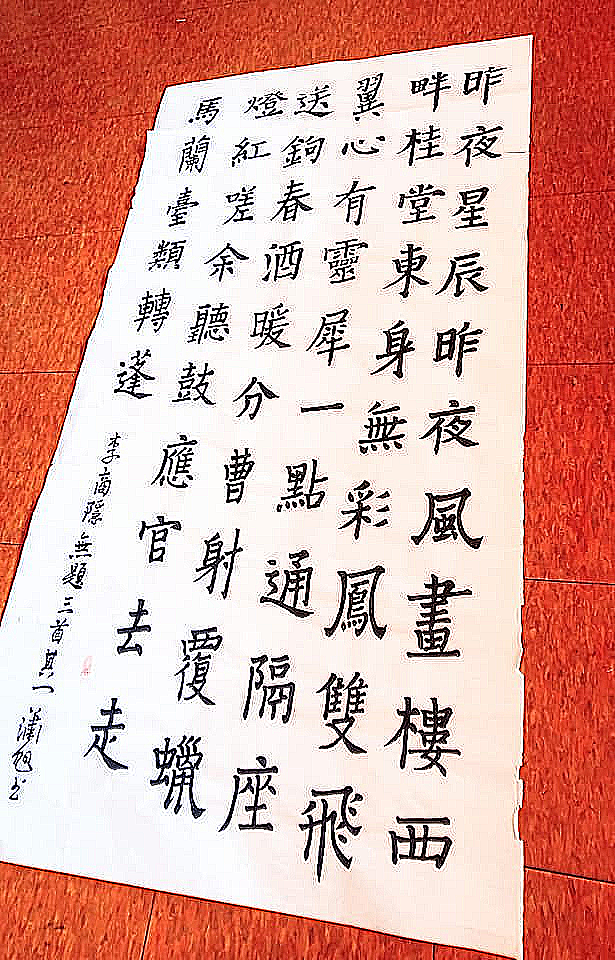 昨夜星辰昨夜風畫樓西
畔桂堂東身無彩鳳雙飛
翼心有靈犀一點通隔座
送鉤春酒暖分曹射覆蠟
燈紅嗟余聽鼓應官去走
馬蘭臺類轉蓬
李商隱無題三首其一 瀟旭书